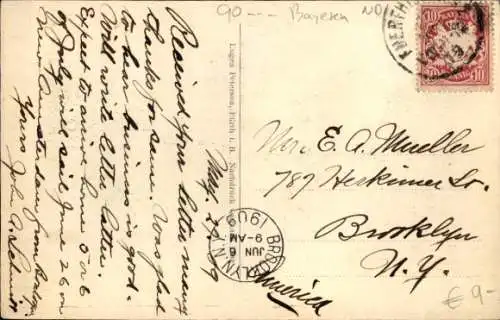 90 --- Bayern NO
FUERTH
10 BAYERN 10
10 10
May 27/09
Received your letter many
thanks for same. Was glad
to hear business is good.
Will write letter later.
Expect to arrive home 5 or 6
of July will sail June 26 on
New Amsterdam from
Yours John A.
Eugen Petersen, Fürth i. B. Nachdruck
BROOKLYN, N.Y.
JUN 6
9-AM
1909
Mr. E. A. Mueller
787 Herkimer St.
Brooklyn
N. Y.
America
€ 9-